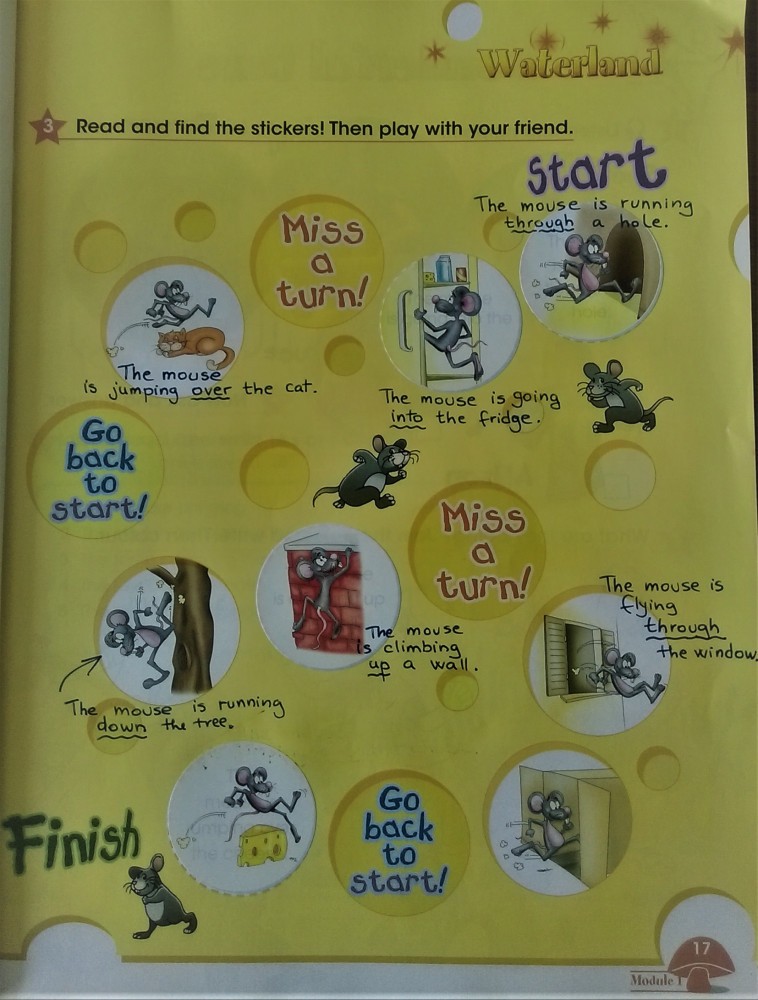 Waterland
3 Read and find the stickers! Then play with your friend.
Start
The mouse is running
through a hole.
Miss
a
turn!
The mouse
is jumping over the cat.
The mouse is going
into the fridge.
Go
back
to
start!
Miss
a
turn!
The mouse is
flying
through
the window.
The mouse
is climbing
up a wall.
The mouse is running
down the tree.
Finish
Go
back
to
start!
17
Module 1